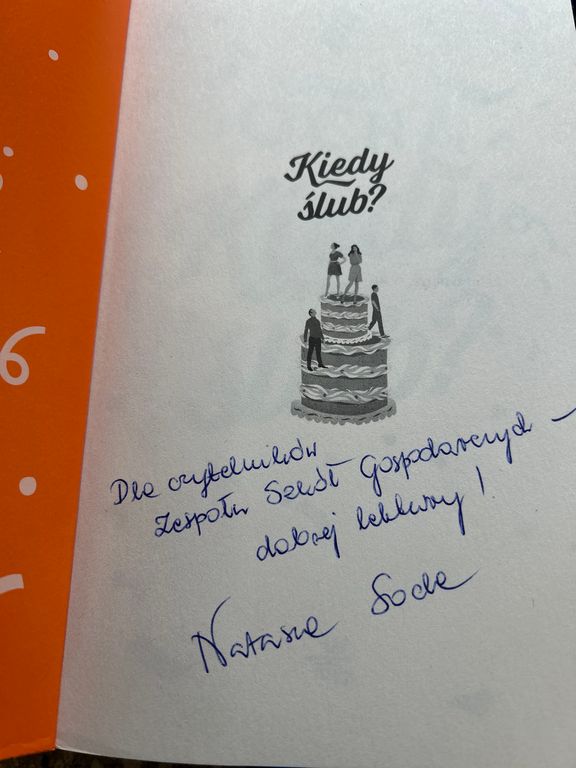 Kiedy
ślub?
Dla czytelników
Zespołu Szkół Gospodarczych –
dobrej lektury!
Natasza Socha
6